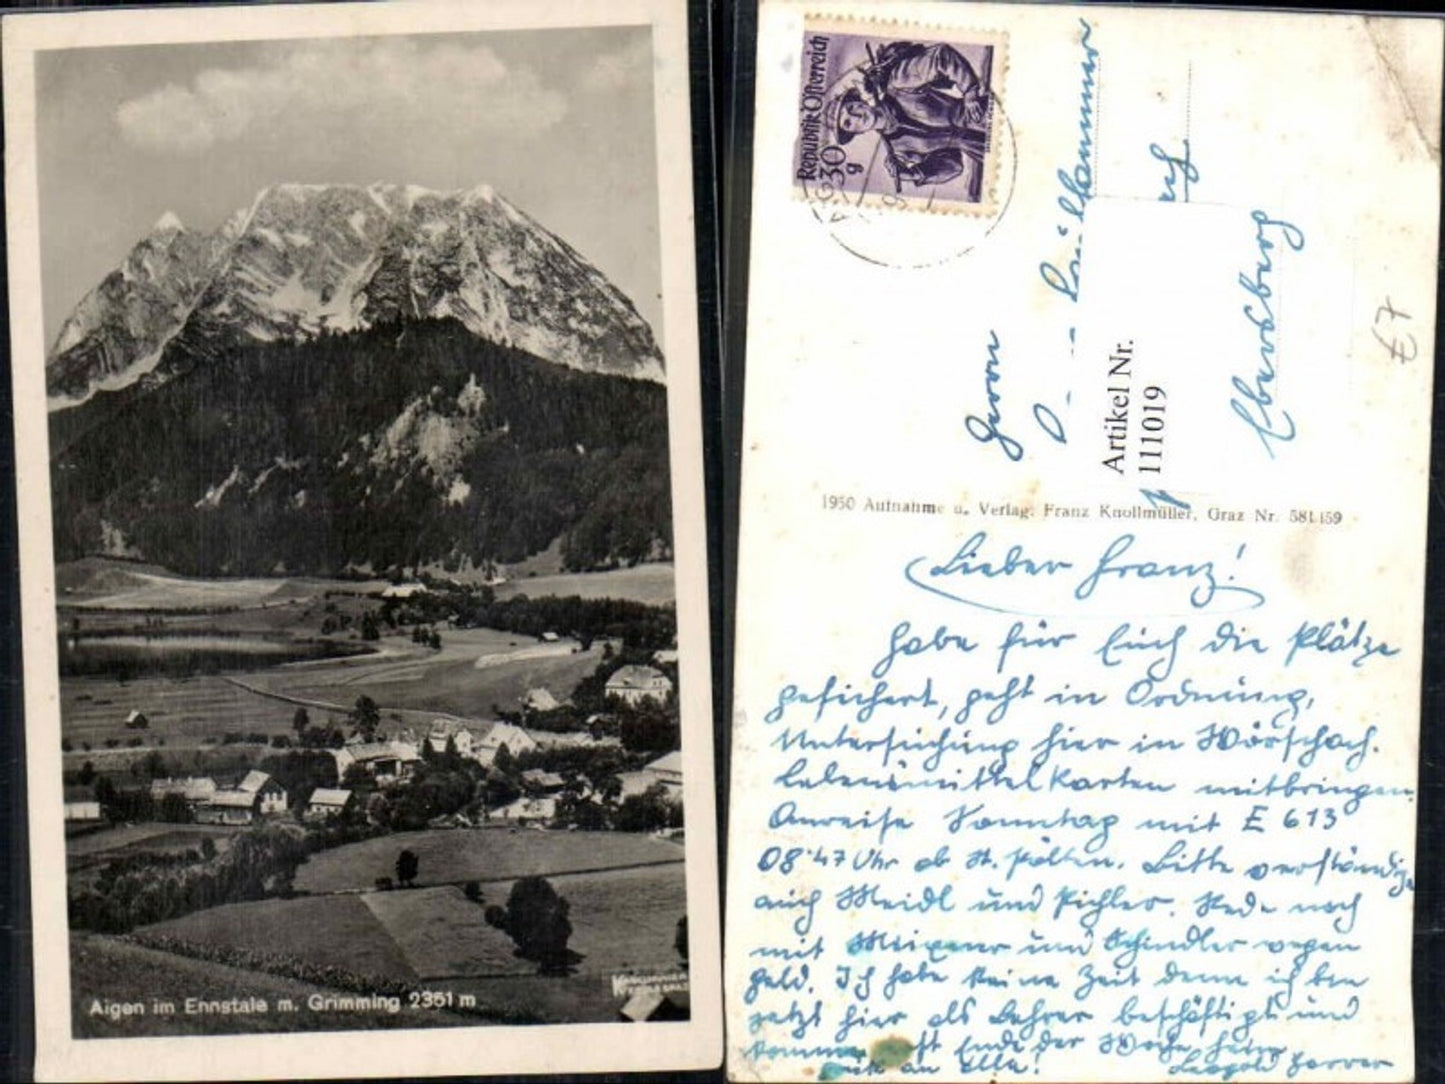 Aigen im Ennstale m. Grimming 2351 m
Republik Österreich
30 g
Herrn
Ebersberg
Artikel Nr.
111019
€7
1950 Aufnahme u. Verlag: Franz Knollmüller, Graz Nr. 581 159
Lieber Franz!
Habe für Euch die Plätze
gesichert, geht in Ordnung,
Untersuchung hier in Wörschach.
Lebensmittelkarten mitbringen.
Anreise Sonntag mit E 613
08:47 Uhr ab St. Pölten. Bitte verständige
auch Meidl und Pichler. Rede noch
mit und Schindler wegen
Geld. Ich habe keine Zeit denn ich bin
jetzt hier als Lehrer beschäftigt und
komme erst Ende der Woche heim
an Alle! Leopold